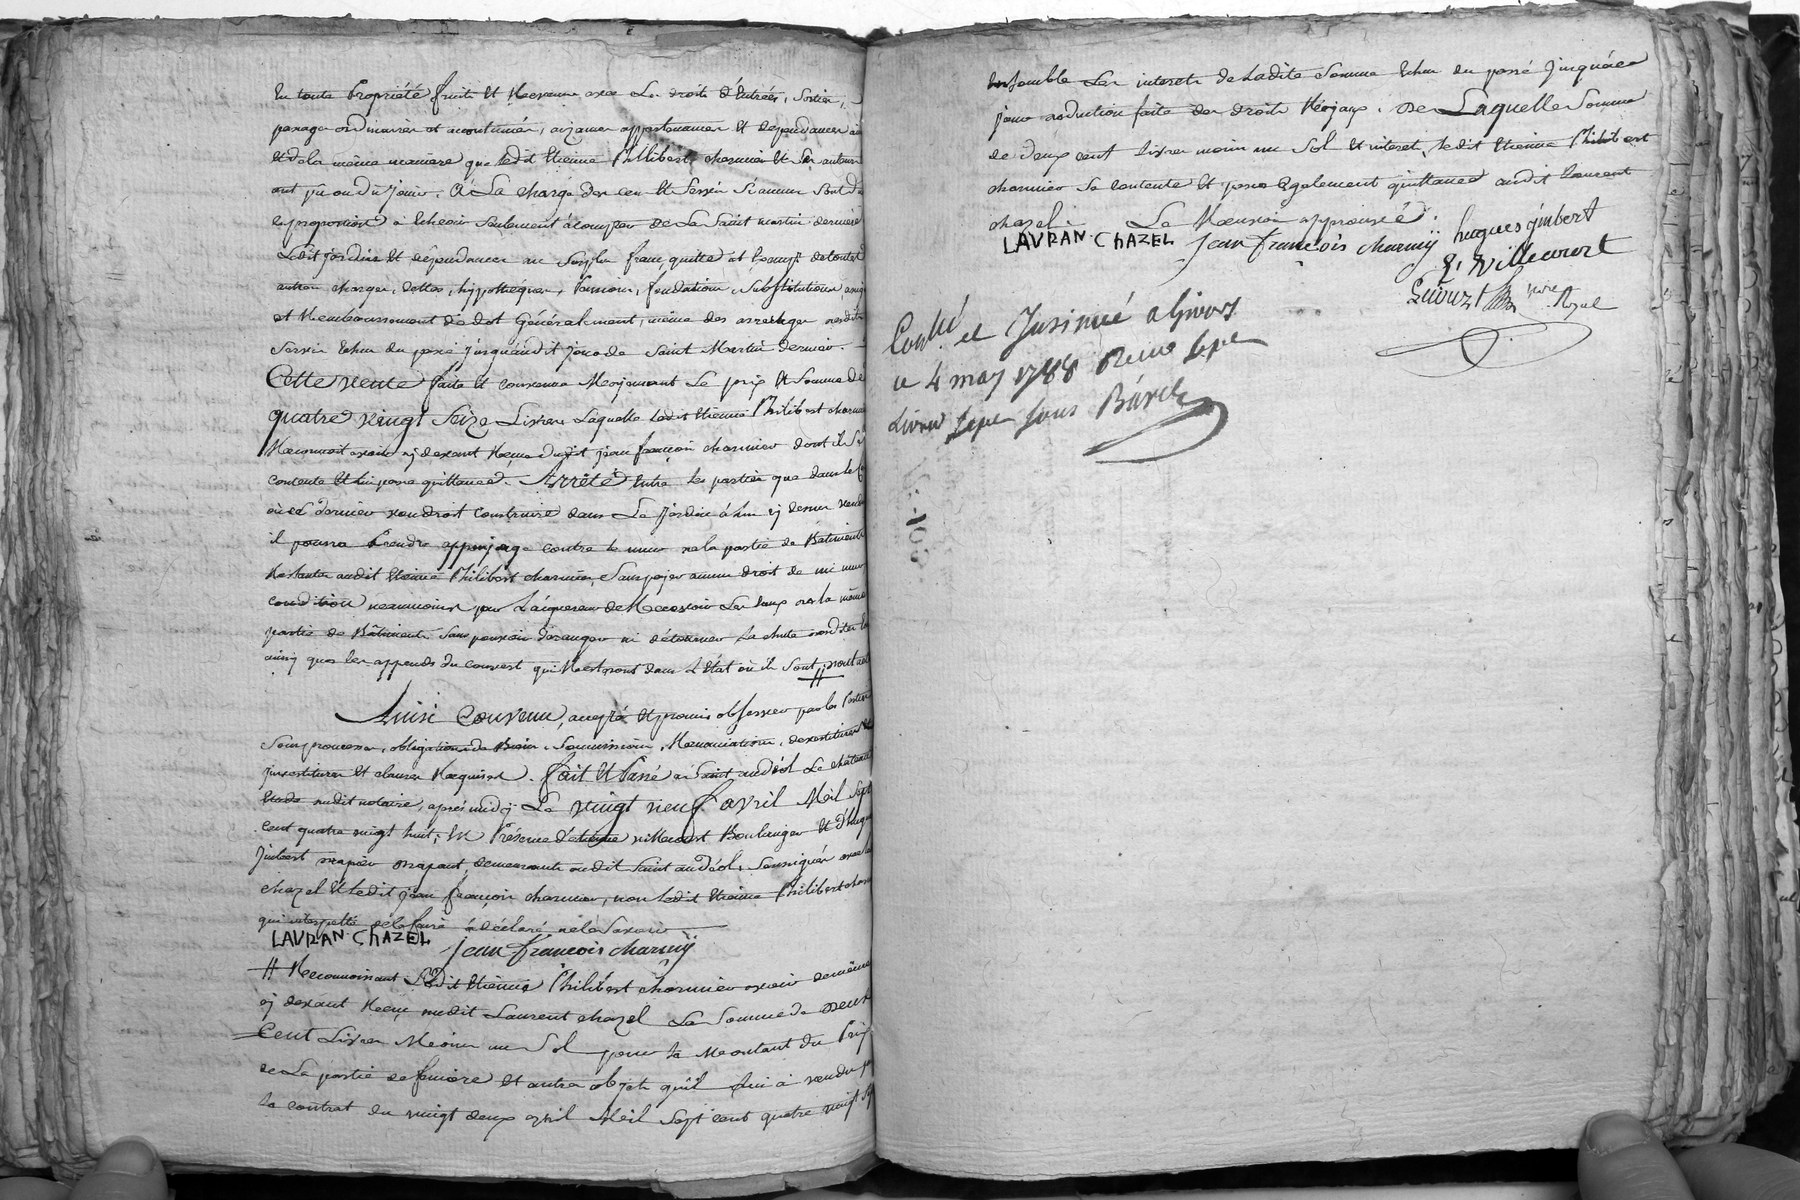 En toute Propriété fruits et Revenus avec les droits d'Entrées, Sorties,
passages ordinaires et accoutumés, aizances appartenances et dependances
et de la même maniere que ledit Etienne Philibert charmier et Ses auteurs
ont pû ou dû jouir. à La charge des cens et Servis
à Echeoir Seulement à compter de La Saint martin derniere
Ledit jardin et dépendances au Surplus franc, quitte et Exempt de toutes
autres charges, dettes, hypotheques, Pensions, fondations, Substitutions,
et Remboursement de dot Généralement, même des arrerages
Servis Echus du passé jusqu'audit jour de Saint Martin dernier.
Cette vente faite et convenue Moyennant Le prix et Somme de
quatre vingt Seize Livres Laquelle ledit Etienne Philibert
Reconnoit avoir cy devant Reçue dudit jean françois charmier dont il Se
contente et lui passe quittance. Arrêté Entre les parties que dans le
où ce dernier voudroit Construire dans Le Jardin à lui cy dessus
il pourra Prendre appuyage contre le mur de la partie de Bâtiments
Restante audit Etienne Philibert charmier, Sans payer aucun droit de mi mur
condition neanmoins pour L'acquereur de Recevoir Les Eaux de la même
partie de Bâtiments Sans pouvoir déranger ni détourner La chute
ainsy que les appends du couvert qui Resteront dans L'Etat où ils Sont. //
Ainsi Convenu, accepté et promis observer par les Parties
Sous promesses, obligations de Biens, Soumissions, Renonciations, devestitures
investitures et clauses Requises. fait et Passé à Saint andéol Le château
Etude dudit notaire, après midy Le vingt neuf avril Mil Sept
Cent quatre vingt huit; En Présence d'etienne villecourt Boulanger et d'hugues
jmbert demeurants audit Saint andéol, Soussignés avec
chazel et ledit jean françois charmier, non ledit Etienne Philibert
qui interpellé de le faire à déclaré ne le Savoir
LAVRAN·ChAZEL jean françois charmiÿ
// Reconnoissant Ledit Etienne Philibert charmier avoir de même
cy devant Reçu dudit Laurent chazel La Somme de Deux
Cent Livres Moins un Sol pour le Montant du Prix
de La partie de feniere et autres objets qu'il lui à vendu
le contrat du vingt deux avril Mil Sept cent quatre vingt
Ensemble Les interets de Ladite Somme Echus du passé jusqu'à ce
jour réduction faite des droits Royaux. De Laquelle Somme
de deux cent Livres moins un Sol et interet, ledit Etienne Philibert
charmier Se contente et passe Egalement quittance audit Laurent
chazel. Le Renvoi approuvé.
LAVRAN·ChAZEL jean francois charmiÿ hugues jmbert
E. villecourt
Royal
Conllé et Insinué a Givors
le 4 may 1788 Recu sept
Livres sept sous